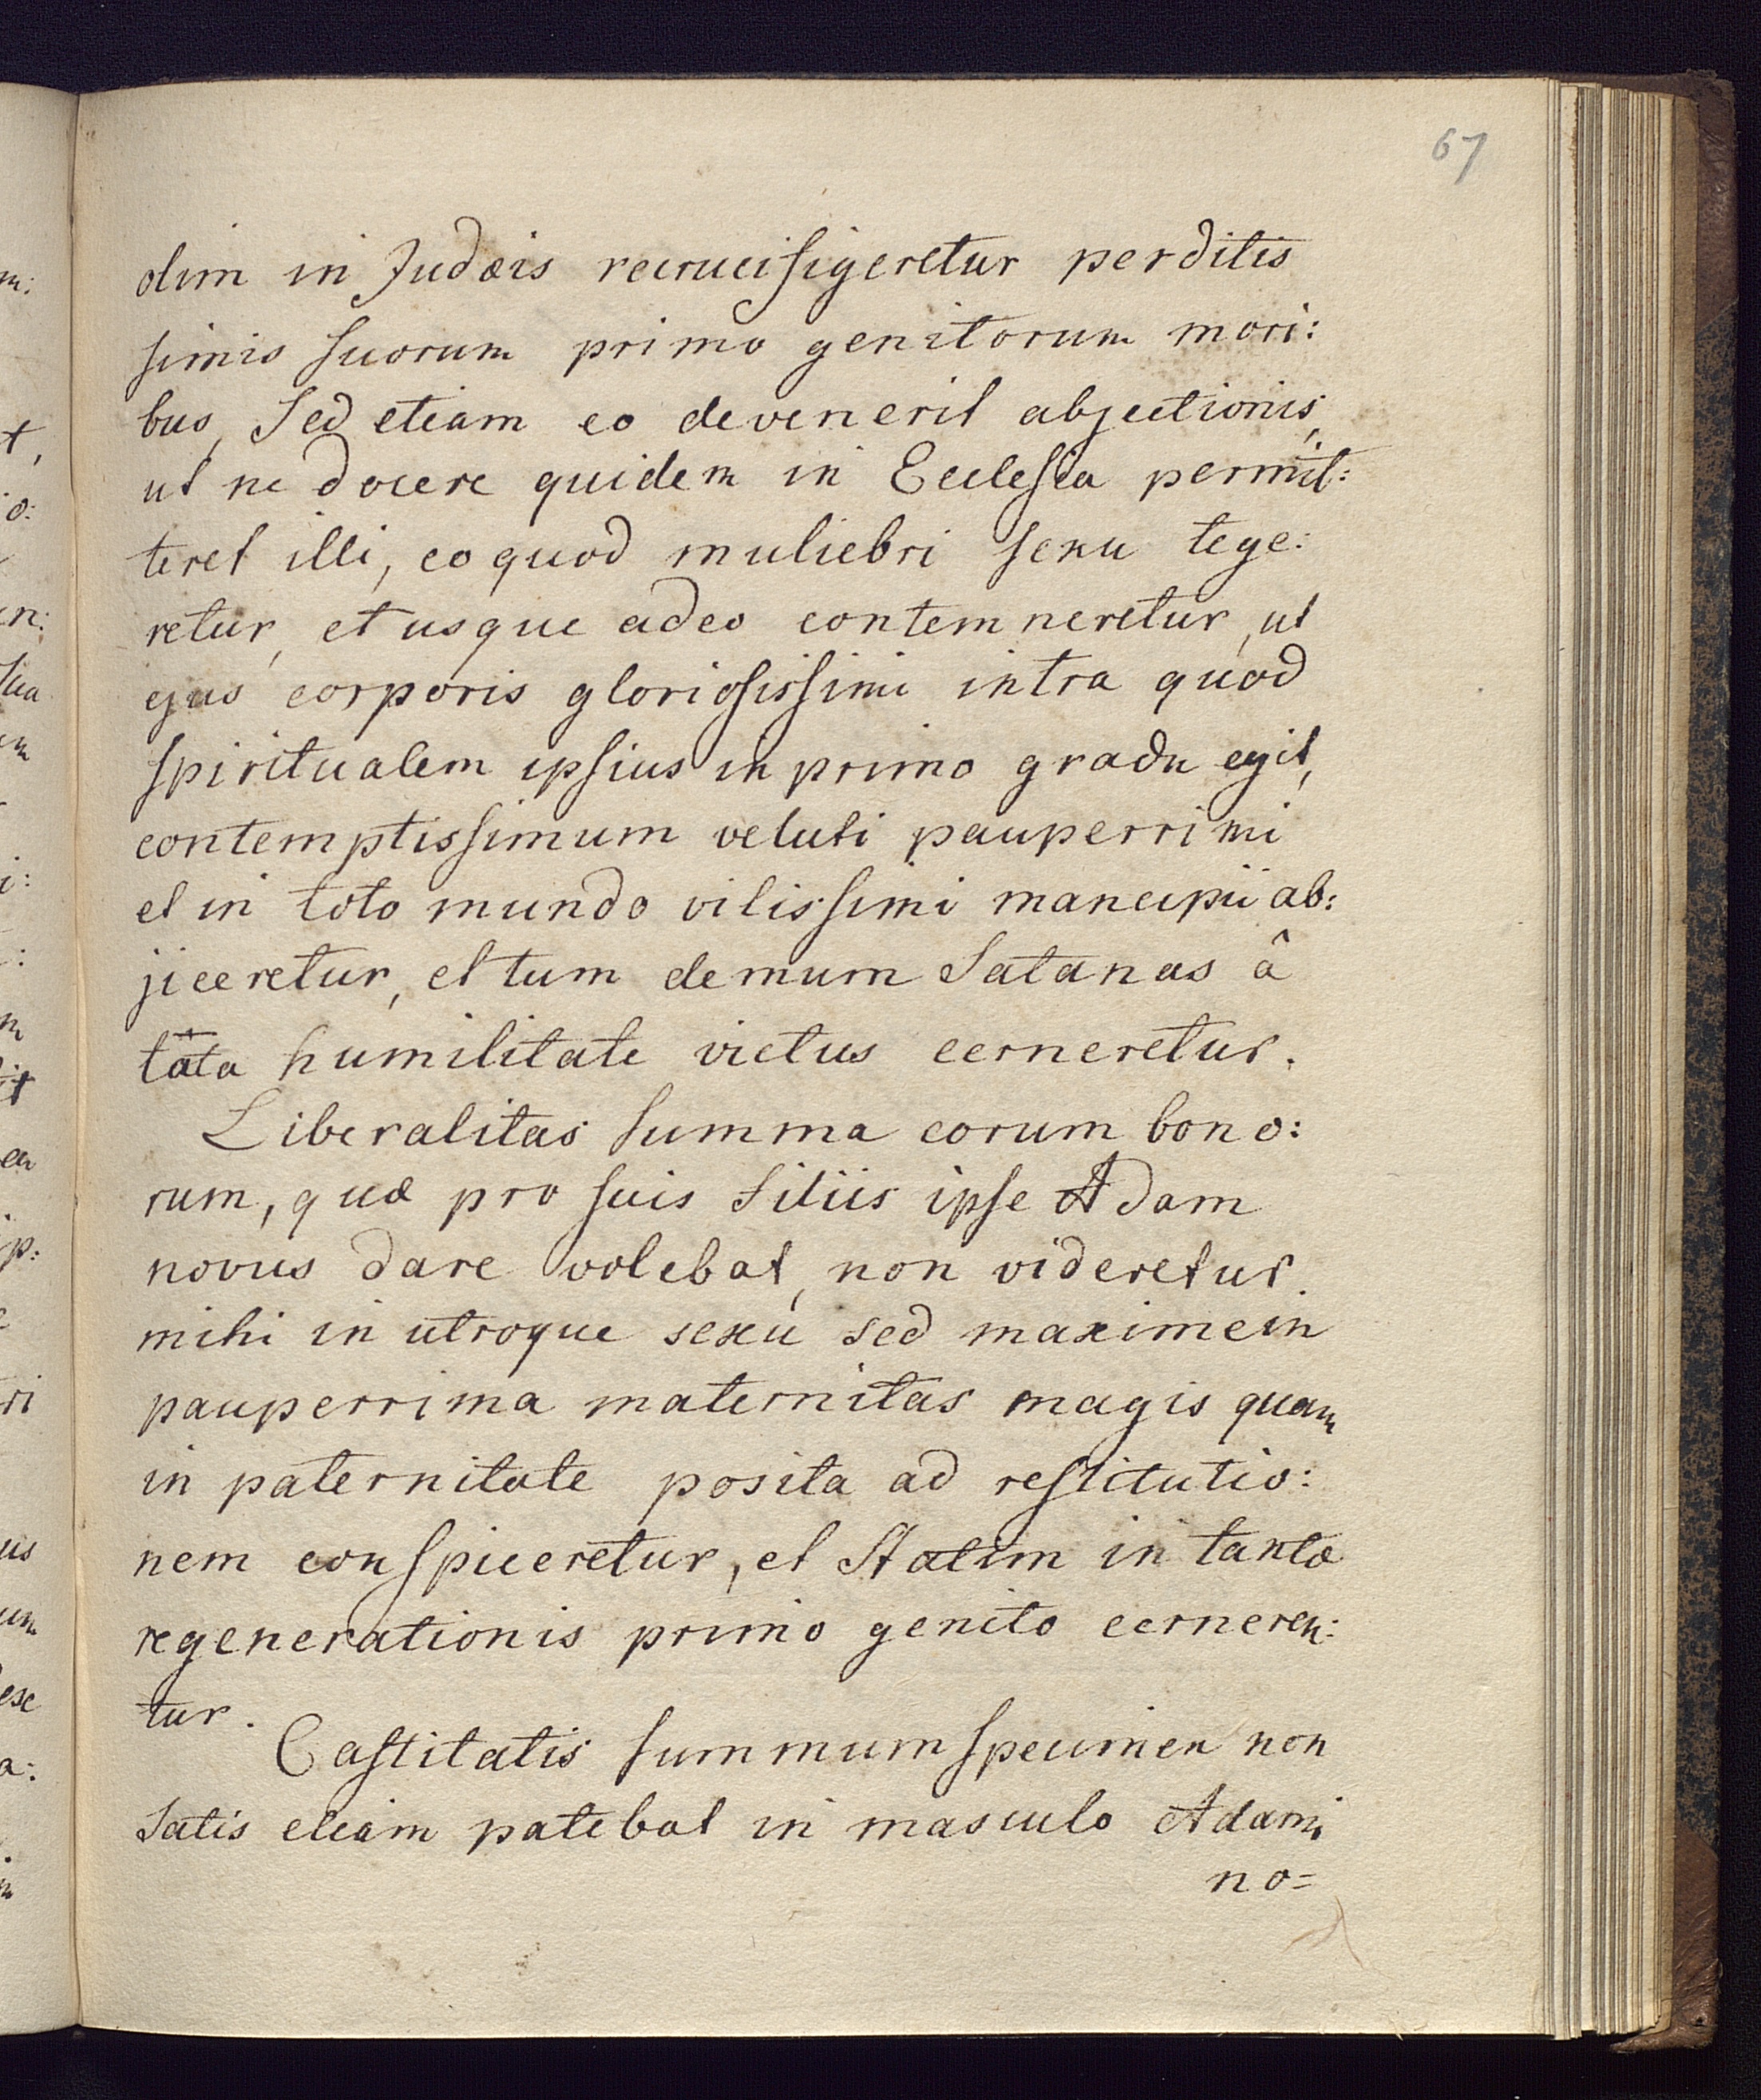 67
olim in Judæis recrucifigeretur perditis
simis suorum primo genitorum mori:
bus, Sed etiam eo devenerit abjectionis,
ut ne docere quidem in Ecclesia permit:
teret illi, eo quod muliebri sexu tege:
retur, et usque adeo contemneretur, ut
ejus corporis gloriosissimi intra quod
spiritualem ipsius in primo gradu egit,
contemptissimum veluti pauperrimi
et in toto mundo vilissimi mancipii ab:
jiceretur, et tum demum Satanas â
tāta humilitate victus cerneretur.
Liberalitas summa eorum bono:
rum, quæ pro suis filiis ipse Adam
novus dare volebat, non videretur.
mihi in utroque sexu sed maxime in
pauperrima maternitas magis quam
in paternitate posita ad restitutio:
nem conspiceretur, et statim in tantæ
regenerationis primo genito cerneren:
tur.
Castitatis summum specimen non
Satis etiam patebat in masculo Adami
no=